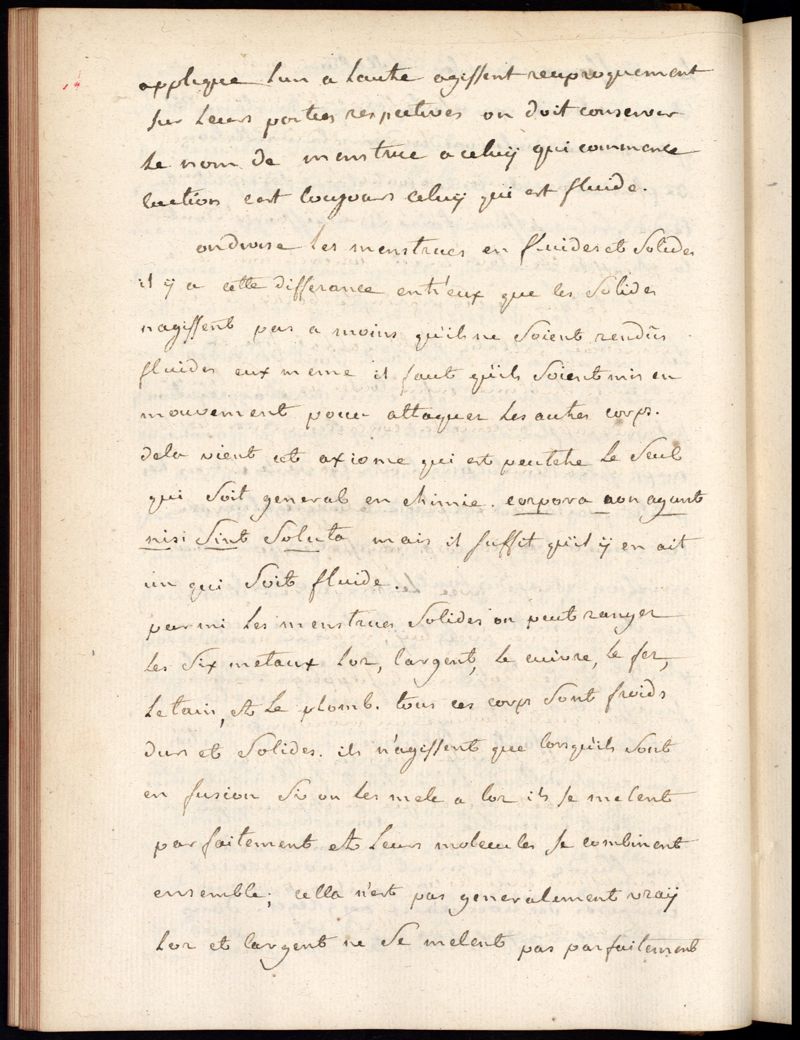 applique lun a lautre agissent reciproquement
sur leurs parties respectives on doit conserver
le nom de menstrue a celuÿ qui commence
laction cest toujours celuÿ qui est fluide.
on divise les menstrues en fluides et solides
il ÿ a cette differance entr'eux que les solides
n'agissent pas a moins qu'ils ne soient rendus
fluides eux meme il faut qu'ils soient mis en
mouvement pour attaquer les autres corps.
dela vient cet axiome qui est peutetre le seul
qui soit general en chimie. corpora non agunt
nisi sint soluta mais il suffit qu'il ÿ en ait
un qui soit fluide.
parmi les menstrues solides on peut ranger
les six metaux lor, largent, le cuivre, le fer,
letain, et le plomb. tous ces corps sont froids
durs et solides. ils n'agissent que lorsquils sont
en fusion si on les mele a lor ils se melent
parfaitement et leurs molecules se combinent
ensemble; cella n'est pas generalement vraÿ
lor et largent ne se melent pas parfaitement